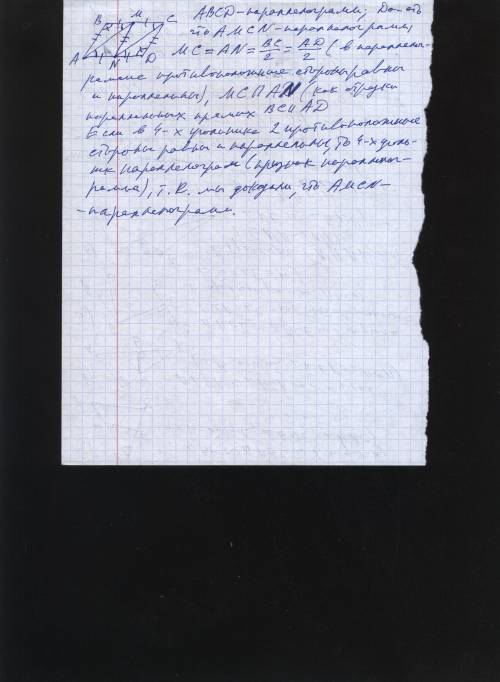 B M C
A N D
ABCD - параллелограмм; Док-ть
что AMCN - параллелограмм,
MC = AN = BC/2 = AD/2 (в паралле-
грамме противоположные стороны равны
и параллельны), MC II AN (как отрезки
параллельных прямых BC II AD
Если в 4-х угольнике 2 противоположные
стороны равны и параллельны, то 4-х уголь-
ник параллелограм (признак параллело-
грамма), т.е. мы доказали, что AMCN -
- параллелограмм.